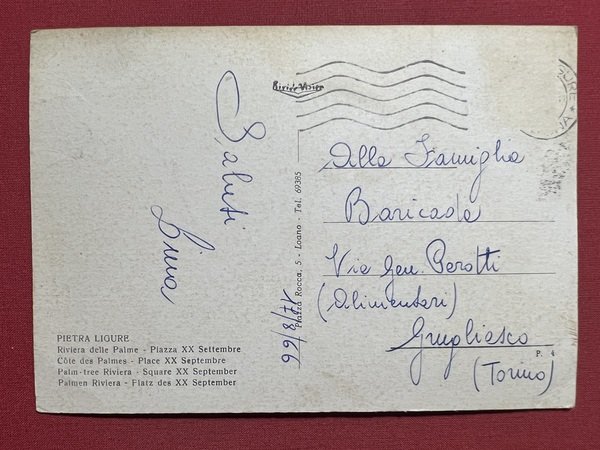 Saluti
Lina
17/8/66
PIETRA LIGURE
Riviera delle Palme - Piazza XX Settembre
Côte des Palmes - Place XX Septembre
Palm-tree Riviera - Square XX September
Palmen Riviera - Flatz des XX September
Piazza Rocca, 5 - Loano - Tel. 69385
Alla Famiglia
Baricada
Via Gen. Perotti
(Alimentari)
Grugliasco
(Torino)
P. 4